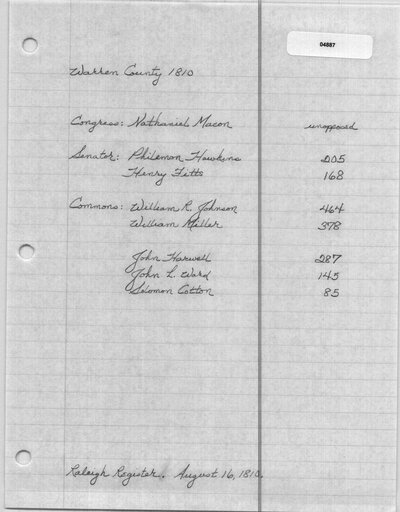 04887
Warren County 1810
Congress: Nathaniel Macon unopposed
Senator: Philemon Hawkins 205
Henry Fitts 168
Commons: William R. Johnson 464
William Miller 378
John Harwell 287
John L. Ward 145
Solomon Cotton 85
Raleigh Register. August 16, 1810.